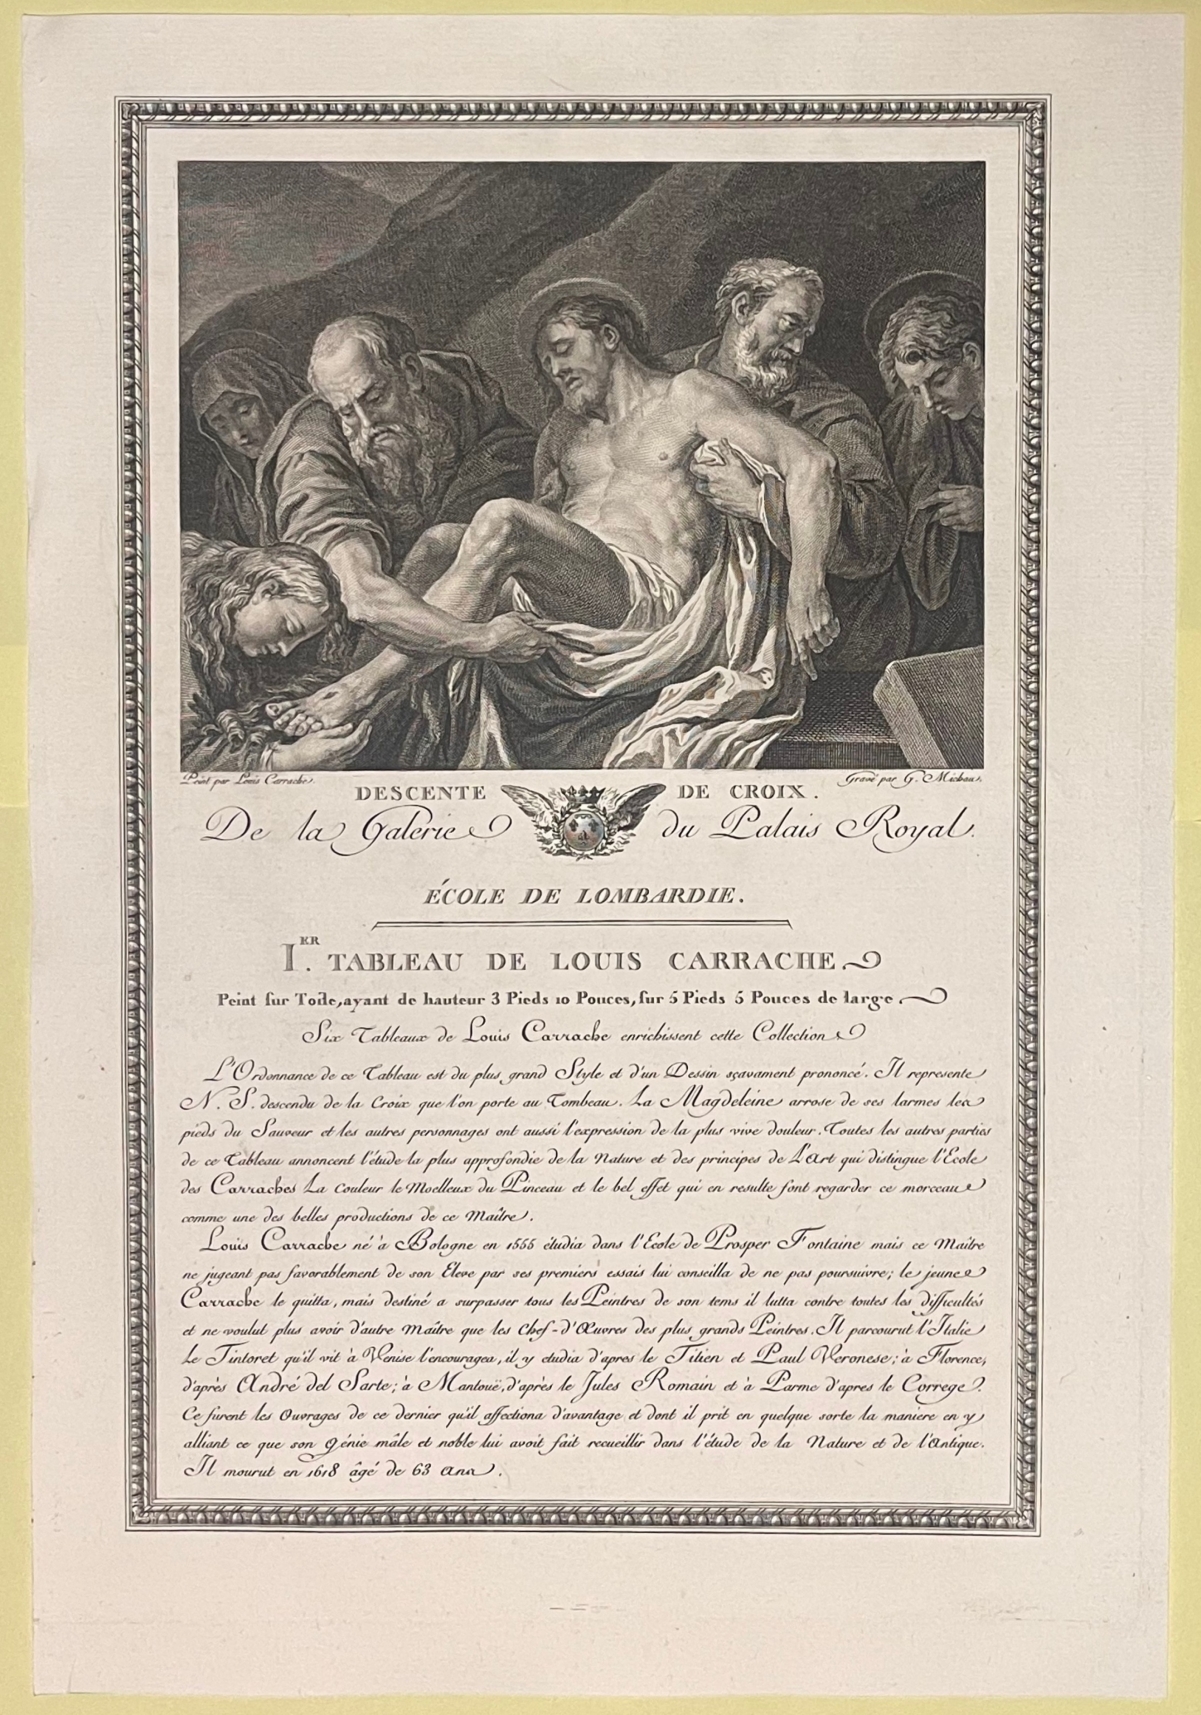 Peint par Louis Carrache. Gravé par G. Michau.
DESCENTE DE CROIX.
De la Galerie du Palais Royal.
ÉCOLE DE LOMBARDIE.
I.ER TABLEAU DE LOUIS CARRACHE.
Peint sur Toile, ayant de hauteur 3 Pieds 10 Pouces, sur 5 Pieds 5 Pouces de large.
Six Tableaux de Louis Carrache enrichissent cette Collection
L'Ordonnance de ce Tableau est du plus grand Style et d'un Dessin sçavament prononcé. Il represente
N. S. descendu de la Croix que l'on porte au Tombeau. La Magdeleine arrose de ses larmes les
pieds du Sauveur et les autres personnages ont aussi l'expression de la plus vive douleur. Toutes les autres parties
de ce Tableau annoncent l'étude la plus approfondie de la Nature et des principes de L'Art qui distingue l'Ecole
des Carraches La Couleur le Moelleux du Pinceau et le bel effet qui en resulte font regarder ce morceau
comme une des belles productions de ce Maître.
Louis Carrache né à Bologne en 1555 étudia dans l'Ecole de Prosper Fontaine mais ce Maître
ne jugeant pas favorablement de son Eleve par ses premiers essais lui conseilla de ne pas poursuivre; le jeune
Carrache le quitta, mais destiné a surpasser tous les Peintres de son tems il lutta contre toutes les difficultés
et ne voulut plus avoir d'autre Maître que les Chef-d'Œuvres des plus grands Peintres. Il parcourut l'Italie
Le Tintoret qu'il vit à Venise l'encouragea, il y etudia d'apres le Titien et Paul Veronese; à Florence,
d'après André del Sarte; à Mantouë, d'après le Jules Romain et à Parme d'apres le Correge.
Ce furent les Ouvrages de ce dernier qu'il affectiona d'avantage et dont il prit en quelque sorte la maniere en y
alliant ce que son Génie mâle et noble lui avoit fait recueillir dans l'étude de la Nature et de l'Antique.
Il mourut en 1618 âgé de 63 Ans.